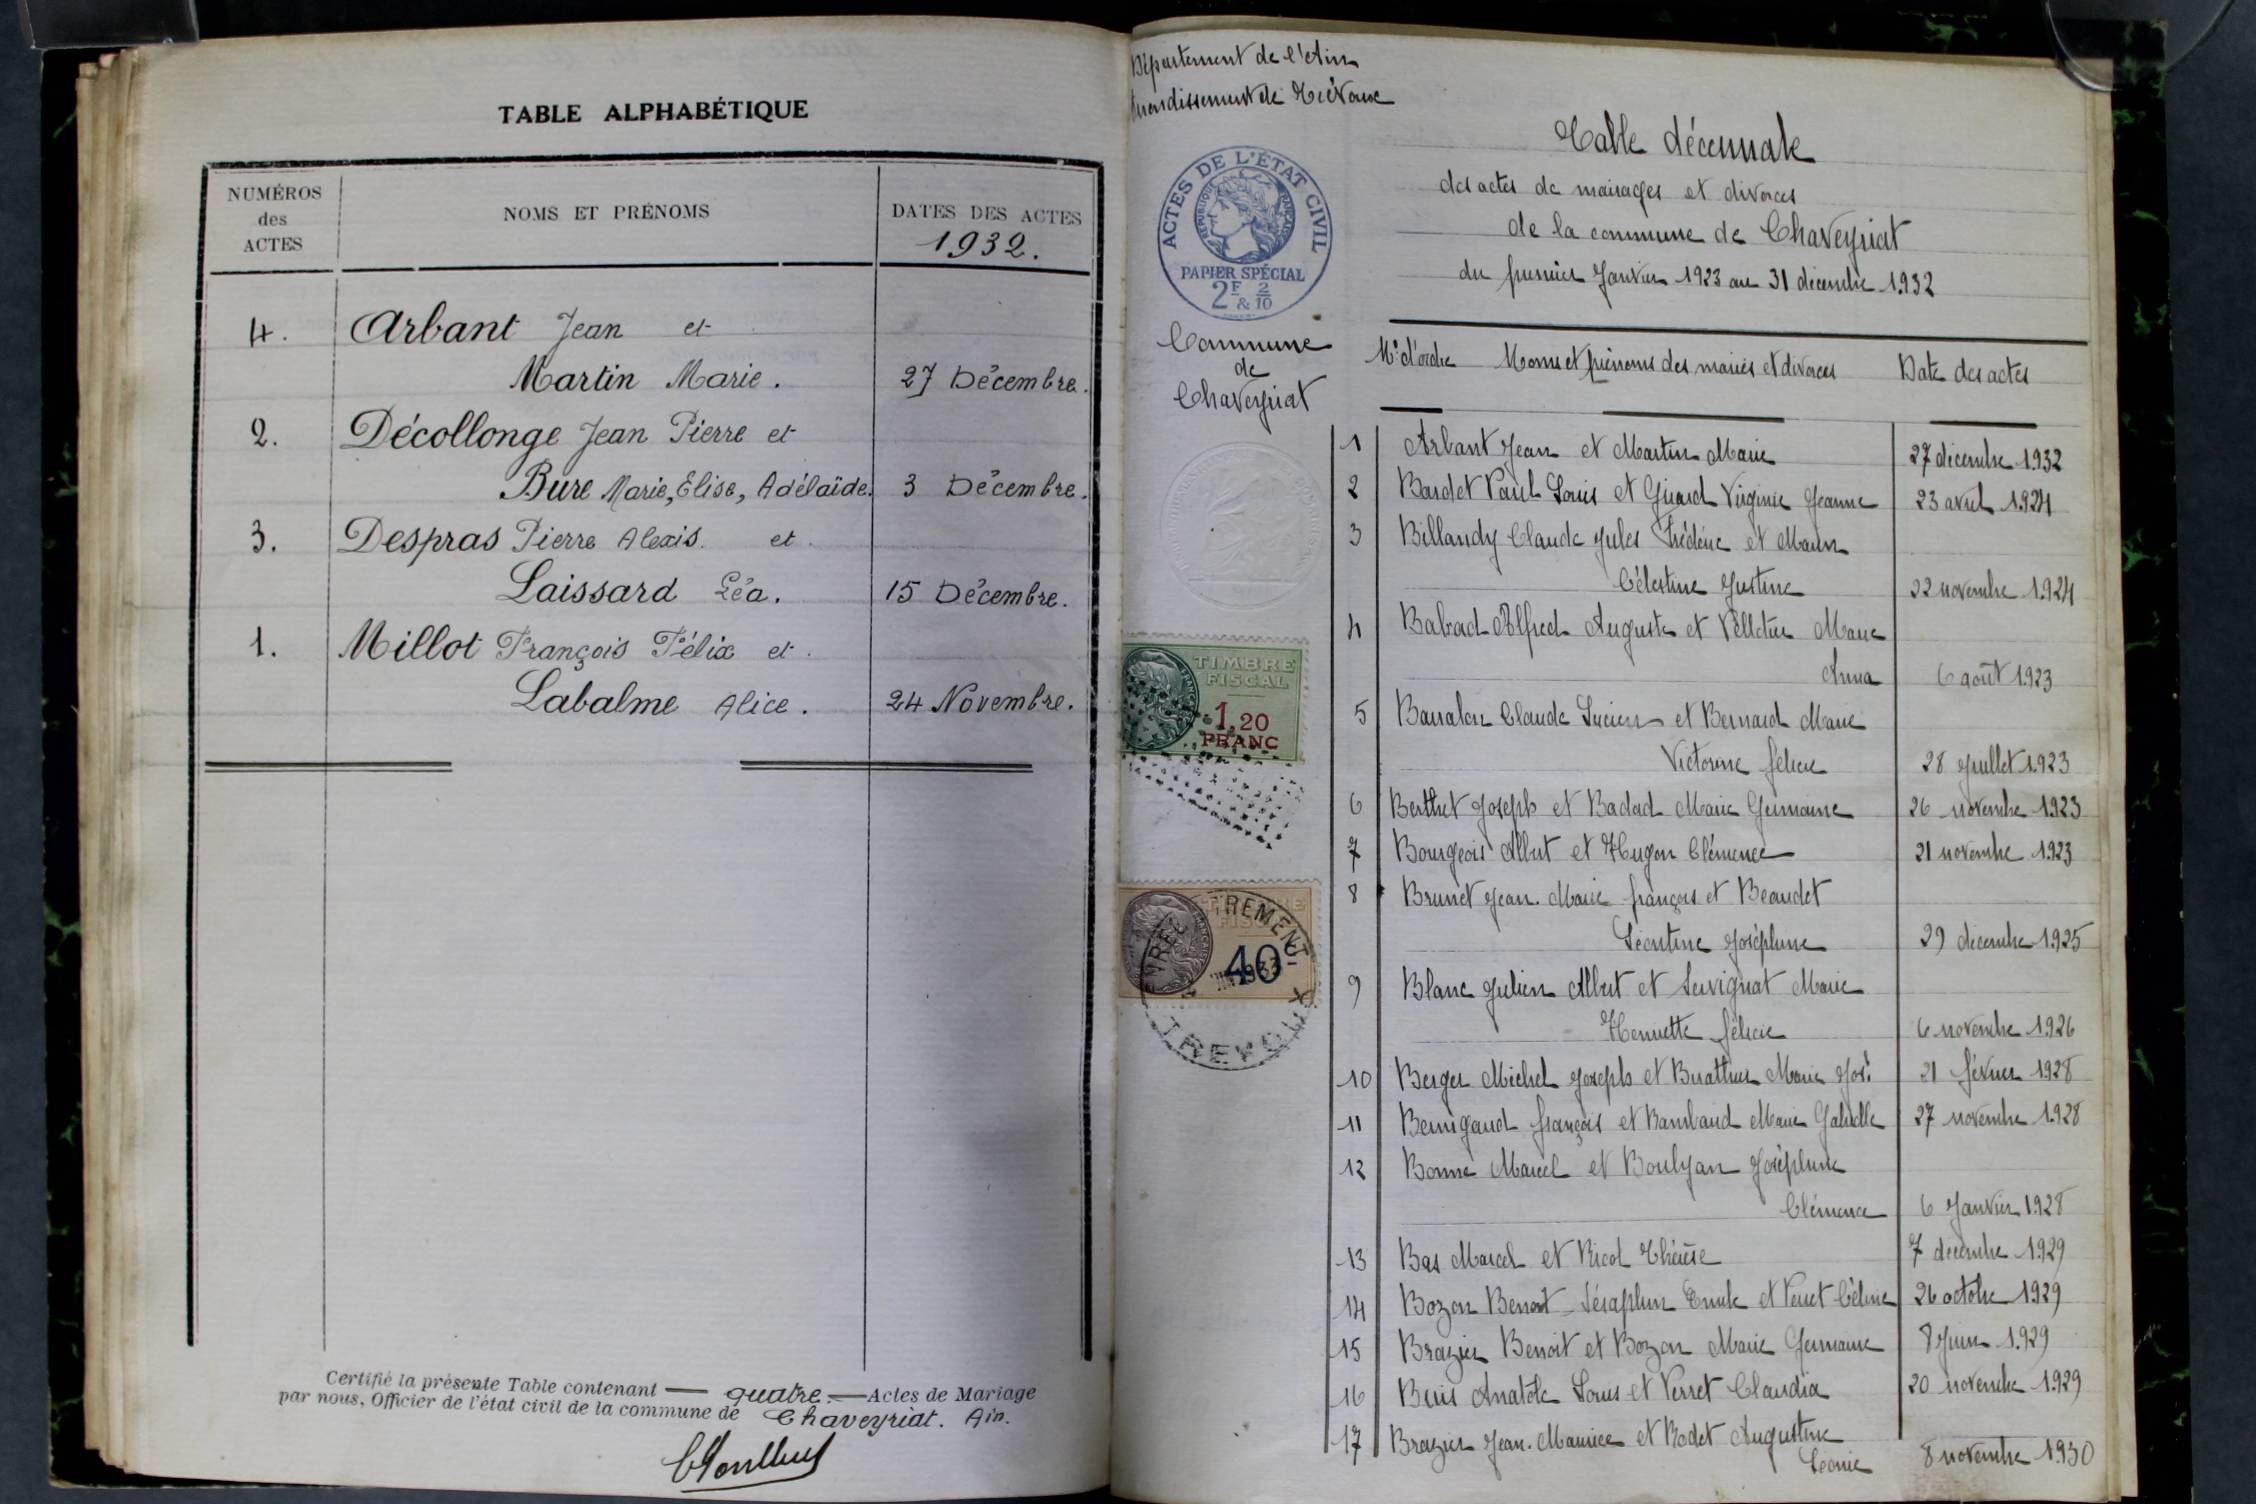 TABLE ALPHABÉTIQUE
NUMÉROS
des
ACTES
NOMS ET PRÉNOMS
DATES DES ACTES
1932.
4. Arbant Jean et
Martin Marie. 27 Décembre.
2. Décollonge Jean Pierre et
Bure Marie, Elise, Adélaïde. 3 Décembre.
3. Despras Pierre Alexis. et
Laissard Léa. 15 Décembre.
1. Millot François Félix et
Labalme Alice. 24 Novembre.
Certifié la présente Table contenant — quatre. — Actes de Mariage
par nous, Officier de l'état civil de la commune de Chaveyriat. Ain.
Département de l'Ain
Arrondissement de Trévoux
ACTES DE L'ÉTAT CIVIL
RÉPUBLIQUE FRANÇAISE
PAPIER SPÉCIAL
2F & 2/10
Commune
de
Chaveyriat
TIMBRE
FISCAL
1,20
FRANC
TIMBRE
FISCAL
40
ENREGISTREMENT
TREVOUX
Table décennale
des actes de mariages et divorces
de la commune de Chaveyriat
du premier Janvier 1923 au 31 décembre 1932
N° d'ordre Noms et prénoms des mariés et divorcés Date des actes
1 Arbant Jean et Martin Marie 27 décembre 1932
2 Bardet Paul Louis et Girard Virginie Jeanne 23 avril 1924
3 Billandy Claude Jules Frédéric et Morin
Célestine Justine 22 novembre 1924
4 Alfred Auguste et Pelletier Marie
Anna 6 août 1923
5 Claude Lucien et Bernard Marie
Victorine félicie 28 Juillet 1923
6 Berthet Joseph et Badad Marie Germaine 26 novembre 1923
7 Bourgeois Albert et Hugon Clémence 21 novembre 1923
8 Brunet Jean-Marie françois et Beaudet
Léontine Joséphine 29 décembre 1925
9 Blanc Julien Albert et Suvignat Marie
Henriette félicie 6 novembre 1926
10 Berger Michel Joseph et Buathier Marie Jos. 21 février 1928
11 Bernigaud françois et Rambaud Marie Gabrielle 27 novembre 1928
12 Bonne Marcel et Boulyan Joséphine
Clémence 6 Janvier 1928
13 Bas Marcel et Ricol Thérèse 7 décembre 1929
14 Bozon Benoit-Séraphin Emile et Perret Céline 26 octobre 1929
15 Brazier Benoit et Bozon Marie Germaine 8 Juin 1929
16 Buis Anatole Louis et Perret Claudia 20 novembre 1929
17 Brazier Jean-Maurice et Rodet Augustine
Léonie 8 novembre 1930